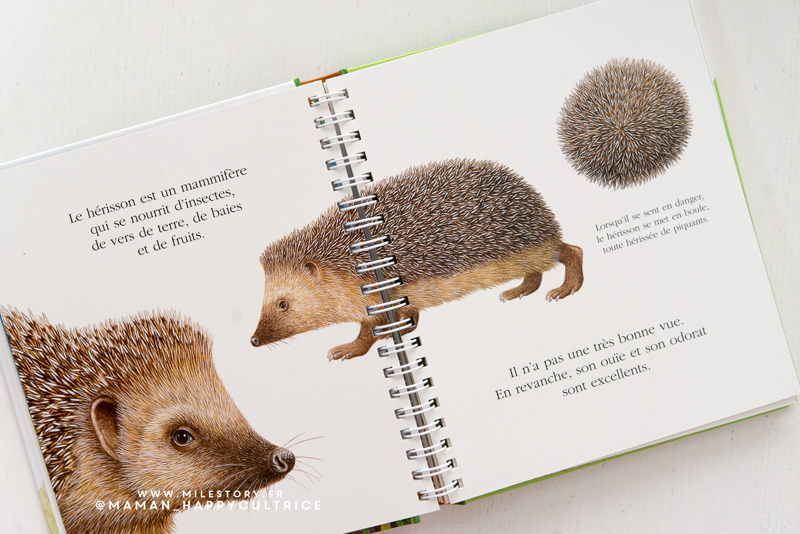 Le hérisson est un mammifère
qui se nourrit d'insectes,
de vers de terre, de baies
et de fruits.
Lorsqu'il se sent en danger,
le hérisson se met en boule,
toute hérissée de piquants.
Il n'a pas une très bonne vue.
En revanche, son ouïe et son odorat
sont excellents.
WWW.MILESTORY.FR
@MAMAN_HAPPYCULTRICE